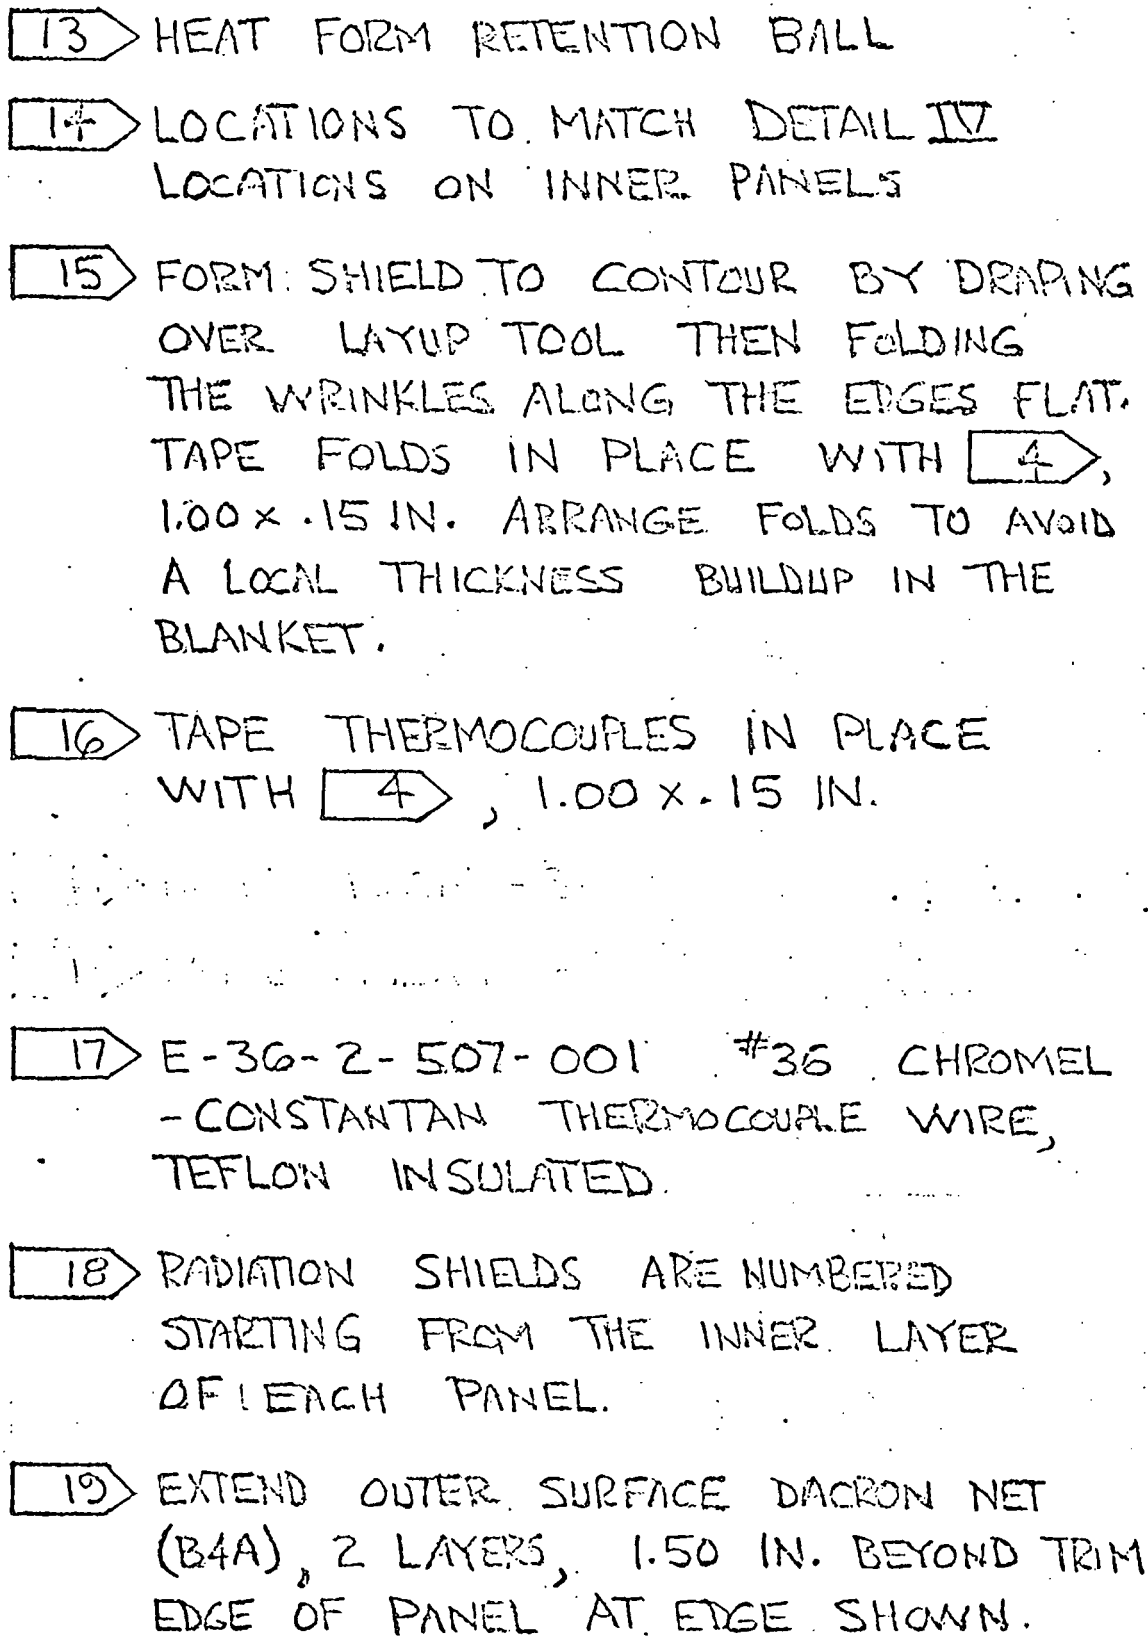 13 HEAT FORM RETENTION BALL
14 LOCATIONS TO MATCH DETAIL IV
LOCATIONS ON INNER PANELS
15 FORM SHIELD TO CONTOUR BY DRAPING
OVER LAYUP TOOL THEN FOLDING
THE WRINKLES ALONG THE EDGES FLAT.
TAPE FOLDS IN PLACE WITH 4,
1.00 x .15 IN. ARRANGE FOLDS TO AVOID
A LOCAL THICKNESS BUILDUP IN THE
BLANKET.
16 TAPE THERMOCOUPLES IN PLACE
WITH 4, 1.00 x .15 IN.
17 E-36-2-507-001 #36 CHROMEL
-CONSTANTAN THERMOCOUPLE WIRE,
TEFLON INSULATED.
18 RADIATION SHIELDS ARE NUMBERED
STARTING FROM THE INNER LAYER
OF EACH PANEL.
19 EXTEND OUTER SURFACE DACRON NET
(B4A), 2 LAYERS, 1.50 IN. BEYOND TRIM
EDGE OF PANEL AT EDGE SHOWN.